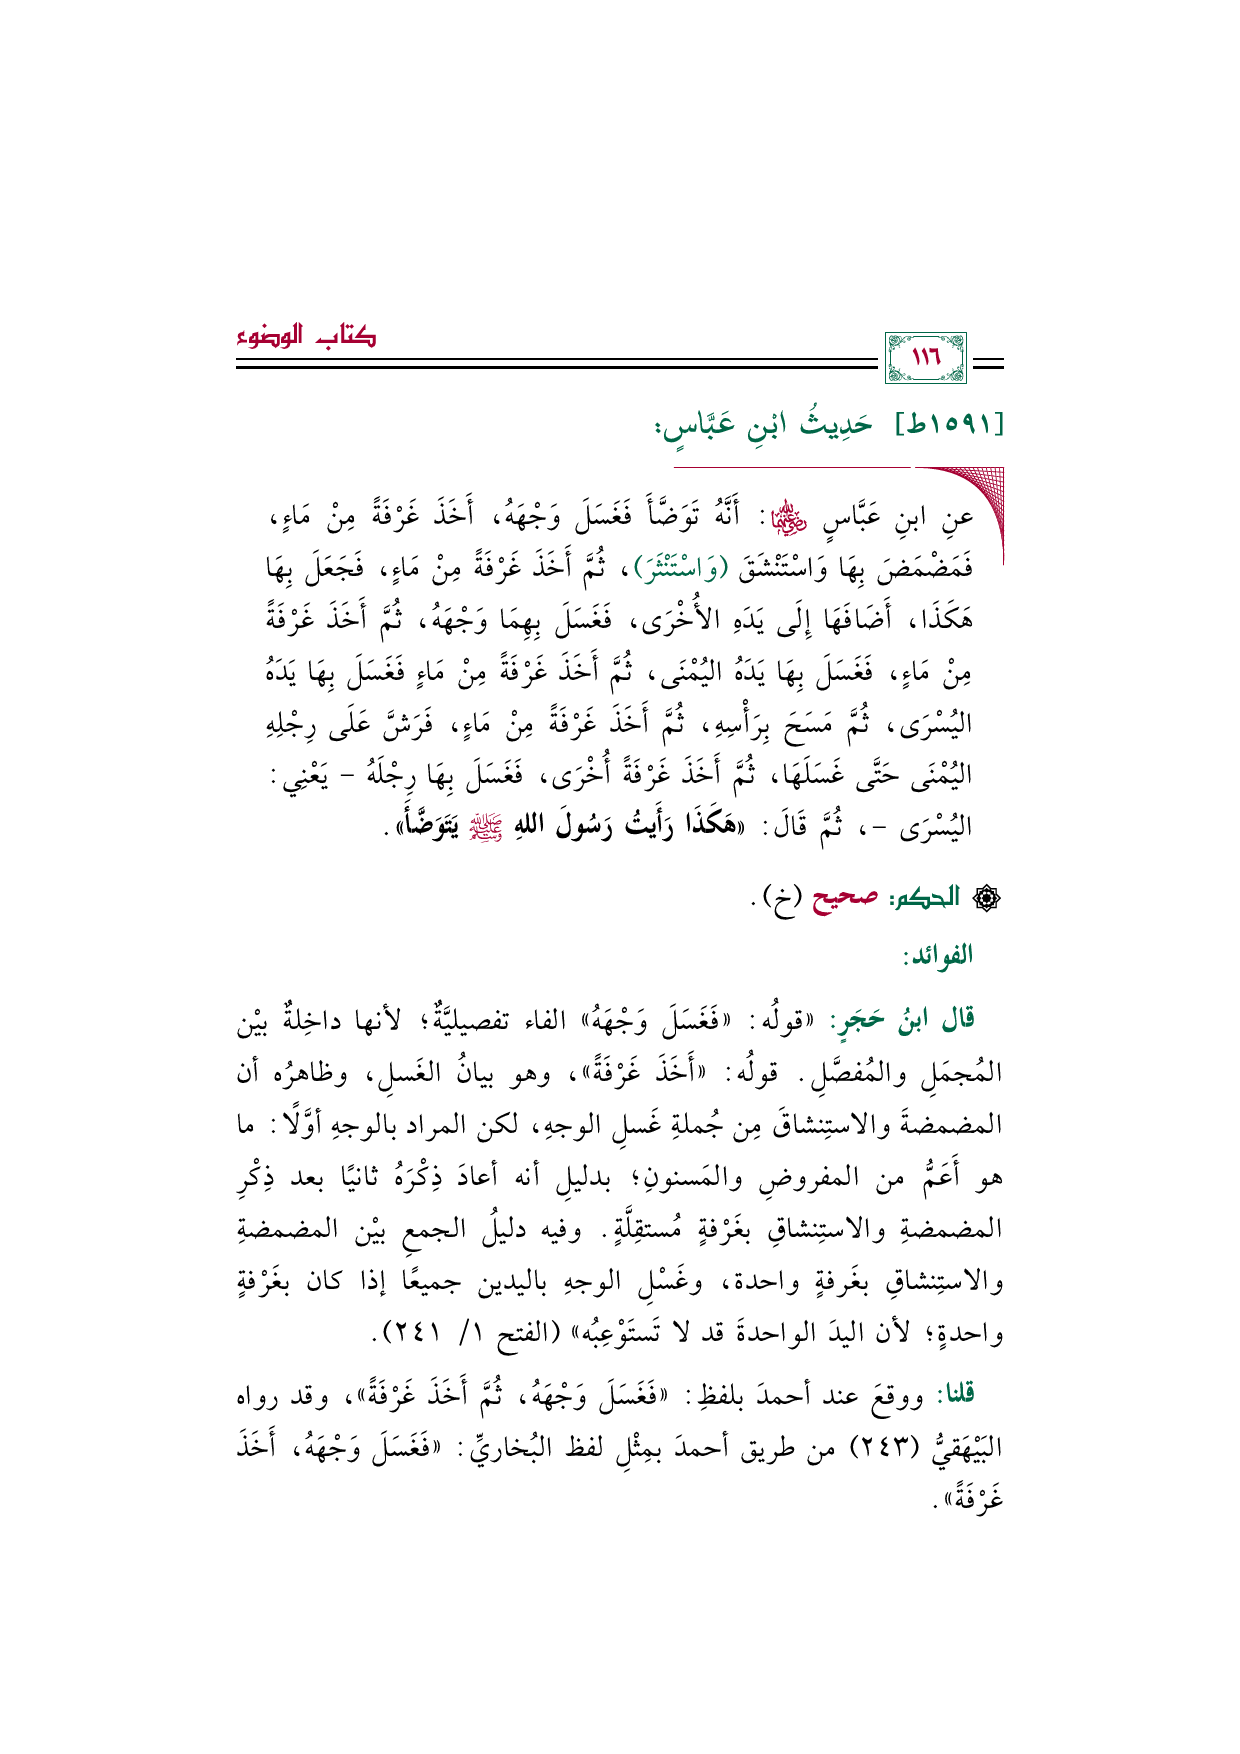 كتاب الوضوء
١١٦
[١٥٩١ط] حَدِيثُ ابْنِ عَبَّاسٍ:
عنِ ابنِ عَبَّاسٍ رضي الله عنهما: أَنَّهُ تَوَضَّأَ فَغَسَلَ وَجْهَهُ، أَخَذَ غَرْفَةً مِنْ مَاءٍ،
فَمَضْمَضَ بِهَا وَاسْتَنْشَقَ (وَاسْتَنْثَرَ)، ثُمَّ أَخَذَ غَرْفَةً مِنْ مَاءٍ، فَجَعَلَ بِهَا
هَكَذَا، أَضَافَهَا إِلَى يَدَهِ الأُخْرَى، فَغَسَلَ بِهِمَا وَجْهَهُ، ثُمَّ أَخَذَ غَرْفَةً
مِنْ مَاءٍ، فَغَسَلَ بِهَا يَدَهُ اليُمْنَى، ثُمَّ أَخَذَ غَرْفَةً مِنْ مَاءٍ فَغَسَلَ بِهَا يَدَهُ
اليُسْرَى، ثُمَّ مَسَحَ بِرَأْسِهِ، ثُمَّ أَخَذَ غَرْفَةً مِنْ مَاءٍ، فَرَشَّ عَلَى رِجْلِهِ
اليُمْنَى حَتَّى غَسَلَهَا، ثُمَّ أَخَذَ غَرْفَةً أُخْرَى، فَغَسَلَ بِهَا رِجْلَهُ – يَعْنِي:
اليُسْرَى –، ثُمَّ قَالَ: «هَكَذَا رَأَيتُ رَسُولَ اللهِ ﷺ يَتَوَضَّأُ».
الحكم: صحيح (خ).
الفوائد:
قال ابنُ حَجَرٍ: «قولُه: «فَغَسَلَ وَجْهَهُ» الفاء تفصيليَّةٌ؛ لأنها داخِلةٌ بيْن
المُجمَلِ والمُفصَّلِ. قولُه: «أَخَذَ غَرْفَةً»، وهو بيانُ الغَسلِ، وظاهرُه أن
المضمضةَ والاستِنشاقَ مِن جُملةِ غَسلِ الوجهِ، لكن المراد بالوجهِ أوَّلًا: ما
هو أَعَمُّ من المفروضِ والمَسنونِ؛ بدليلِ أنه أعادَ ذِكْرَهُ ثانيًا بعد ذِكْرِ
المضمضةِ والاستِنشاقِ بغَرْفةٍ مُستقِلَّةٍ. وفيه دليلُ الجمعِ بيْن المضمضةِ
والاستِنشاقِ بغَرفةٍ واحدة، وغَسْلِ الوجهِ باليدين جميعًا إذا كان بغَرْفةٍ
واحدةٍ؛ لأن اليدَ الواحدةَ قد لا تَستَوْعِبُه» (الفتح ١/ ٢٤١).
قلنا: ووقعَ عند أحمدَ بلفظِ: «فَغَسَلَ وَجْهَهُ، ثُمَّ أَخَذَ غَرْفَةً»، وقد رواه
البَيْهَقيُّ (٢٤٣) من طريق أحمدَ بمِثْلِ لفظ البُخاريِّ: «فَغَسَلَ وَجْهَهُ، أَخَذَ
غَرْفَةً».